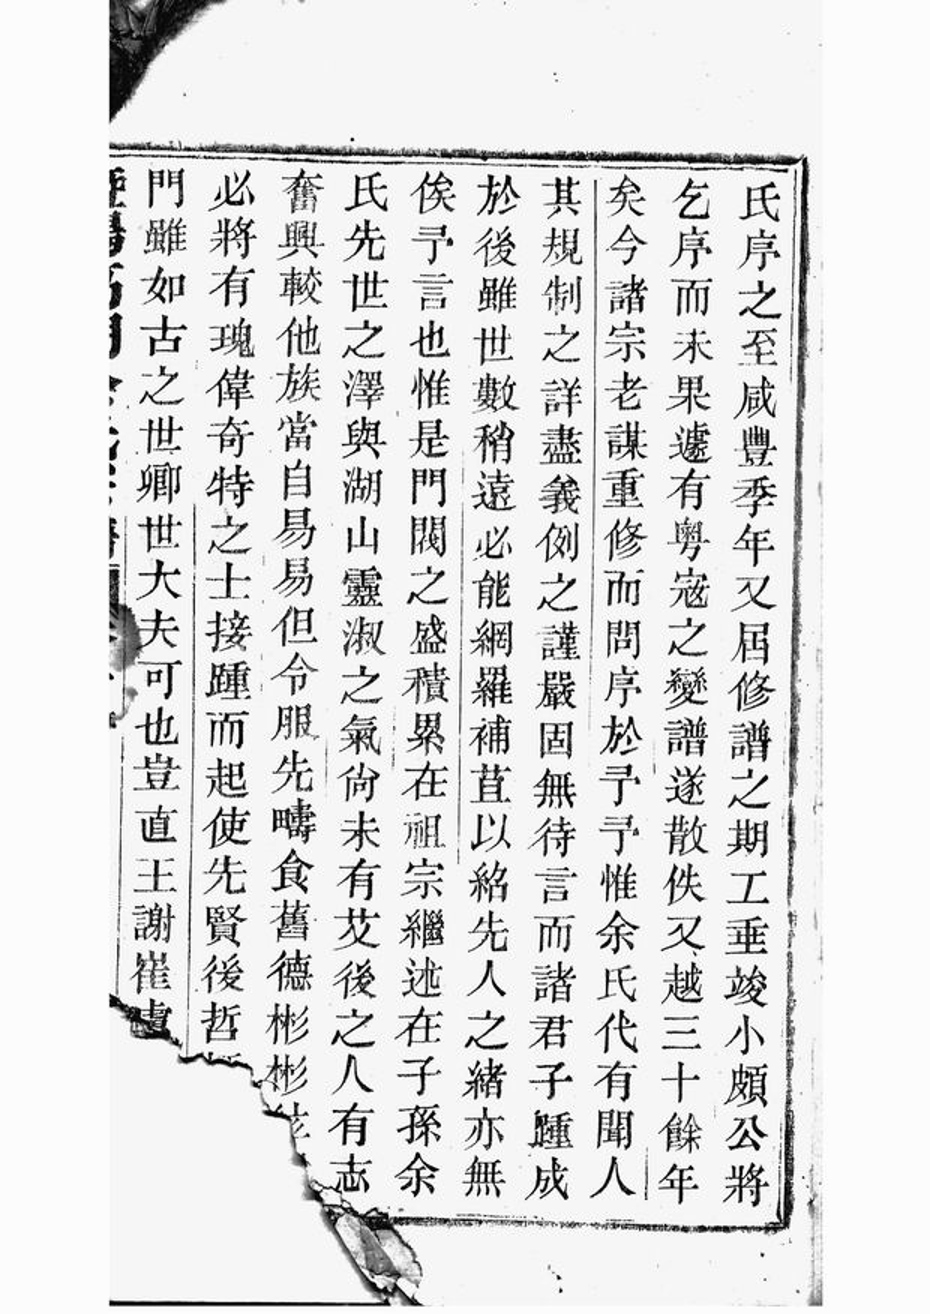 氏序之至咸豐季年又屆修譜之期工垂竣小頗公將
乞序而未果遽有粵寇之變譜遂散佚又越三十餘年
矣今諸宗老謀重修而問序於予予惟余氏代有聞人
其規制之詳盡義例之謹嚴固無待言而諸君子踵成
於後雖世數稍遠必能網羅補苴以紹先人之緒亦無
俟予言也惟是門閥之盛積累在祖宗繼述在子孫余
氏先世之澤與湖山靈淑之氣尙未有艾後之人有志
奮興較他族當自易易但令服先疇食舊德彬彬
必將有瑰偉奇特之士接踵而起使先賢後哲
門雖如古之世卿世大夫可也豈直王謝崔